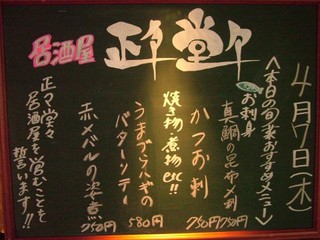 居酒屋 正々堂々
4月7日(木)
<本日の旬菜おすすめメニュー>
お刺身
真鯛の昆布〆刺
750円
かつお刺
750円
焼き物、煮物etc!!
うまづらハギの
バターソテー
580円
赤メバルの姿煮
750円
正々堂々
居酒屋を営むことを
誓います!!